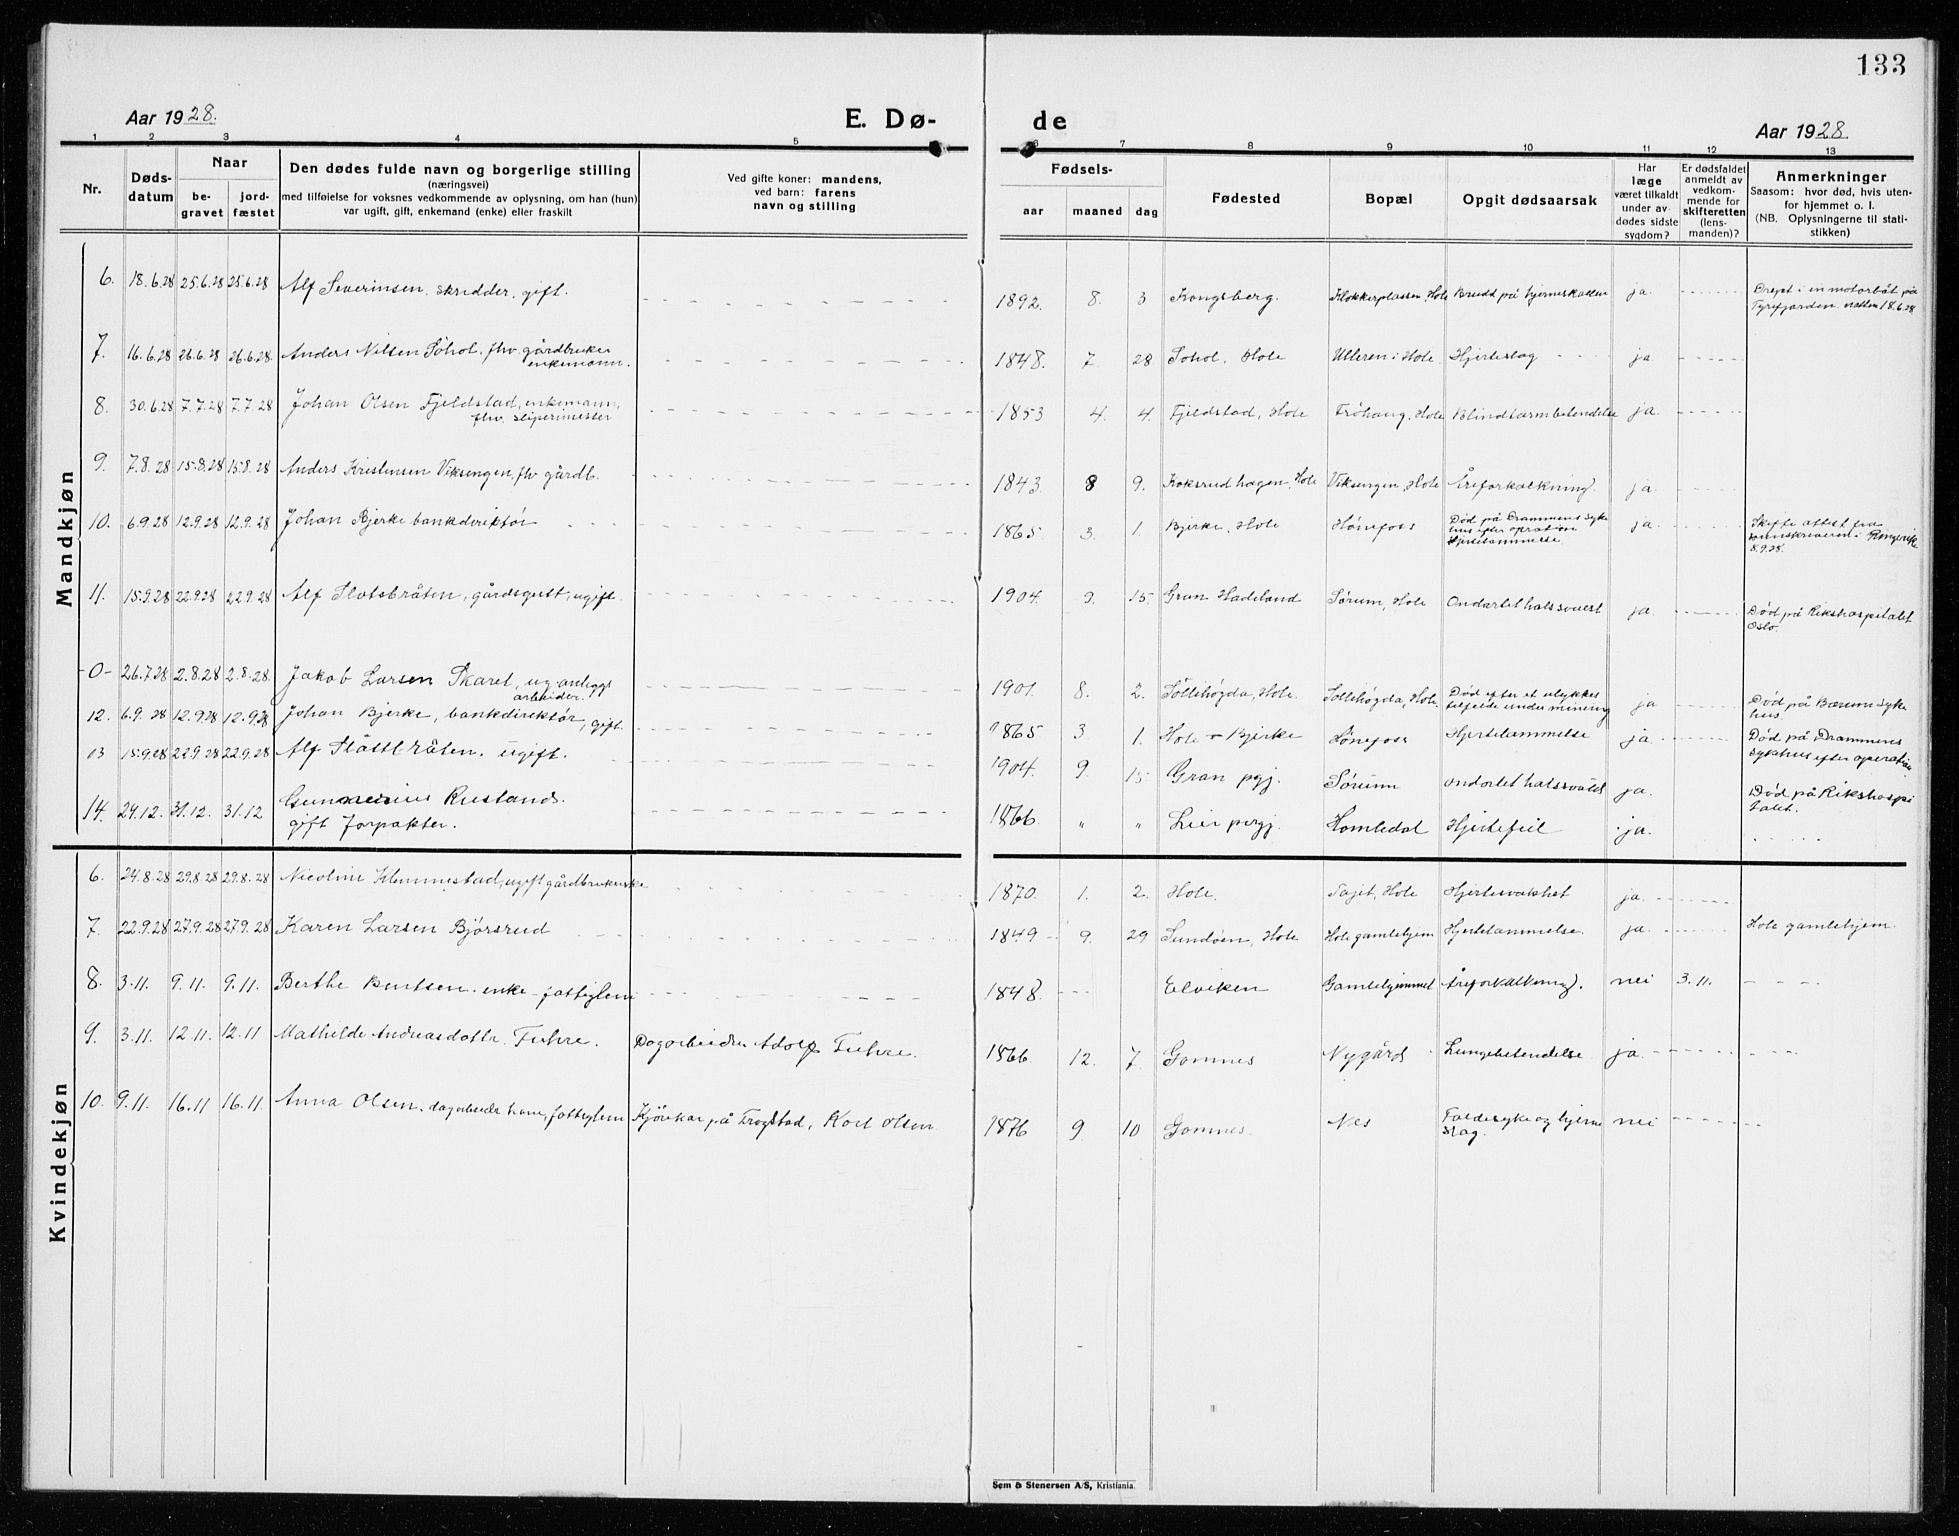 133
Aar 1928. E. Dø- de Aar 1928.
1 2 3 4 5 6 7 8 9 10 11 12 13
Nr.
Døds-
datum
Naar
be-
gravet
jord-
fæstet
Den dødes fulde navn og borgerlige stilling
(næringsvei)
med tilføielse for voksnes vedkommende av oplysning, om han (hun)
var ugift, gift, enkemand (enke) eller fraskilt
Ved gifte koner: mandens,
ved barn: farens
navn og stilling
Fødsels-
aar maaned dag
Fødested
Bopæl
Opgit dødsaarsak
Har
læge
været tilkaldt
under av-
dødes sidste
sygdom?
Er dødsfaldet
anmeldt av
vedkom-
mende for
skifteretten
(lens-
manden)?
Anmerkninger
Saasom: hvor død, hvis uten-
for hjemmet o. l.
(NB. Oplysningerne til stati-
stikken)
Mandkjøn
6. 18.6.28 25.6.28 25.6.28 Alf Severinsen. skredder. gift. 1892. 8. 3 Kongsberg. Klokkerplassen, Hole Brudd på hjerneskallen ja. Drept i en motorbåt på
Tyrifjorden natten 18.6.28
7. 16.6.28 26.6.28 26.6.28 Anders Nilsen Søhol, fhv. gårdbruker
enkemann. 1848. 7. 28 Søhol, Hole Ulleren i Hole. Hjerteslag ja
8. 30.6.28 7.7.28 7.7.28 Johan Olsen Fjeldstad, enkemann,
fhv. sliperimester 1853 4. 4. Fjeldstad, Hole Frøhaug, Hole Blindtarmbetendelse ja.
9. 7.8.28 15.8.28 15.8.28 Anders Kristensen Viksengen, fhv gårdb. 1843 8 9. Koksrudhagen, Hole Viksengen, Hole Åreforkalkning. ja
10. 6.9.28 12.9.28 12.9.28 Johan Bjerke bankdirektør 1865 3. 1. Bjerke, Hole Hønefoss Død på Drammens syke
hus efter opration
Hjertelammelse. ja. Skifte attest fra
sorenskriveren i Ringerike
8.9.28.
11. 15.9.28 22.9.28 22.9.28 Alf Slotsbråten, gårdsgutt, ugift. 1904. 9. 15. Gran Hadeland Sørum, Hole Ondartet halssvulst ja Død på Rikshospitalet
Oslo.
-0- 26.7.28 2.8.28 2.8.28. Jakob Larsen Skaret, ug. anlegs
arbeider. 1901. 8. 2. Sollihøgda, Hole. Sollihøgda, Hole. Død efter et ulykkes
tilfelde under minering ja Død på Bærum syke
hus.
12. 6.9.28 12.9.28 12.9.28 Johan Bjerke, bankdirektør, gift. 1865 3 1. Hole - Bjerke Hønefoss Hjertelammelse ja. Død på Drammens
sykehus efter operation
13 15.9.28 22.9.28 22.9.28 Alf Slåttbråten. ugift. 1904. 9. 15 Gran pgj. Sørum ondartet halssvulst ja. Død på Rikshospi
talet.
14. 24.12. 31.12. 31.12 Gunnerius Rustand.
gift forpakter. 1866. " " Lier prgj. Homledal Hjertefeil ja.
Kvindekjøn
6. 24.8.28 29.8.28 29.8.28 Nicoline Klemmestad, ugift gårdbrukerske 1870. 1. 2. Hole. Hole Hjertesvakhet ja.
7. 22.9.28 27.9.28 27.9.28 Karen Larsen Bjørsrud 1849 9. 29 Sundøen, Hole Hole gamlehjem Hjertelammelse. ja. Hole gamlehjem.
8. 3.11. 9.11. 9.11. Berthe Bentsen. enke - fattiglem 1848. Elviken Gamlehjemmet Åreforkalkning. nei 3.11.
9. 3.11. 12.11. 12.11 Mathilde Andreasdottr. Fuhre. Dagarbeider Adolf Fuhre. 1866. 12. 7. Gomnes Nygård Lungebetendelse ja.
10. 9.11. 16.11 16.11. Anna Olsen. dagarbeider kone, fattiglem Kjørekar på Trøgstad, Karl Olsen. 1876 9. 10 Gomnes. Nes Faldesyke og hjerne
slag. nei
Sem & Stenersen A/S, Kristiania.